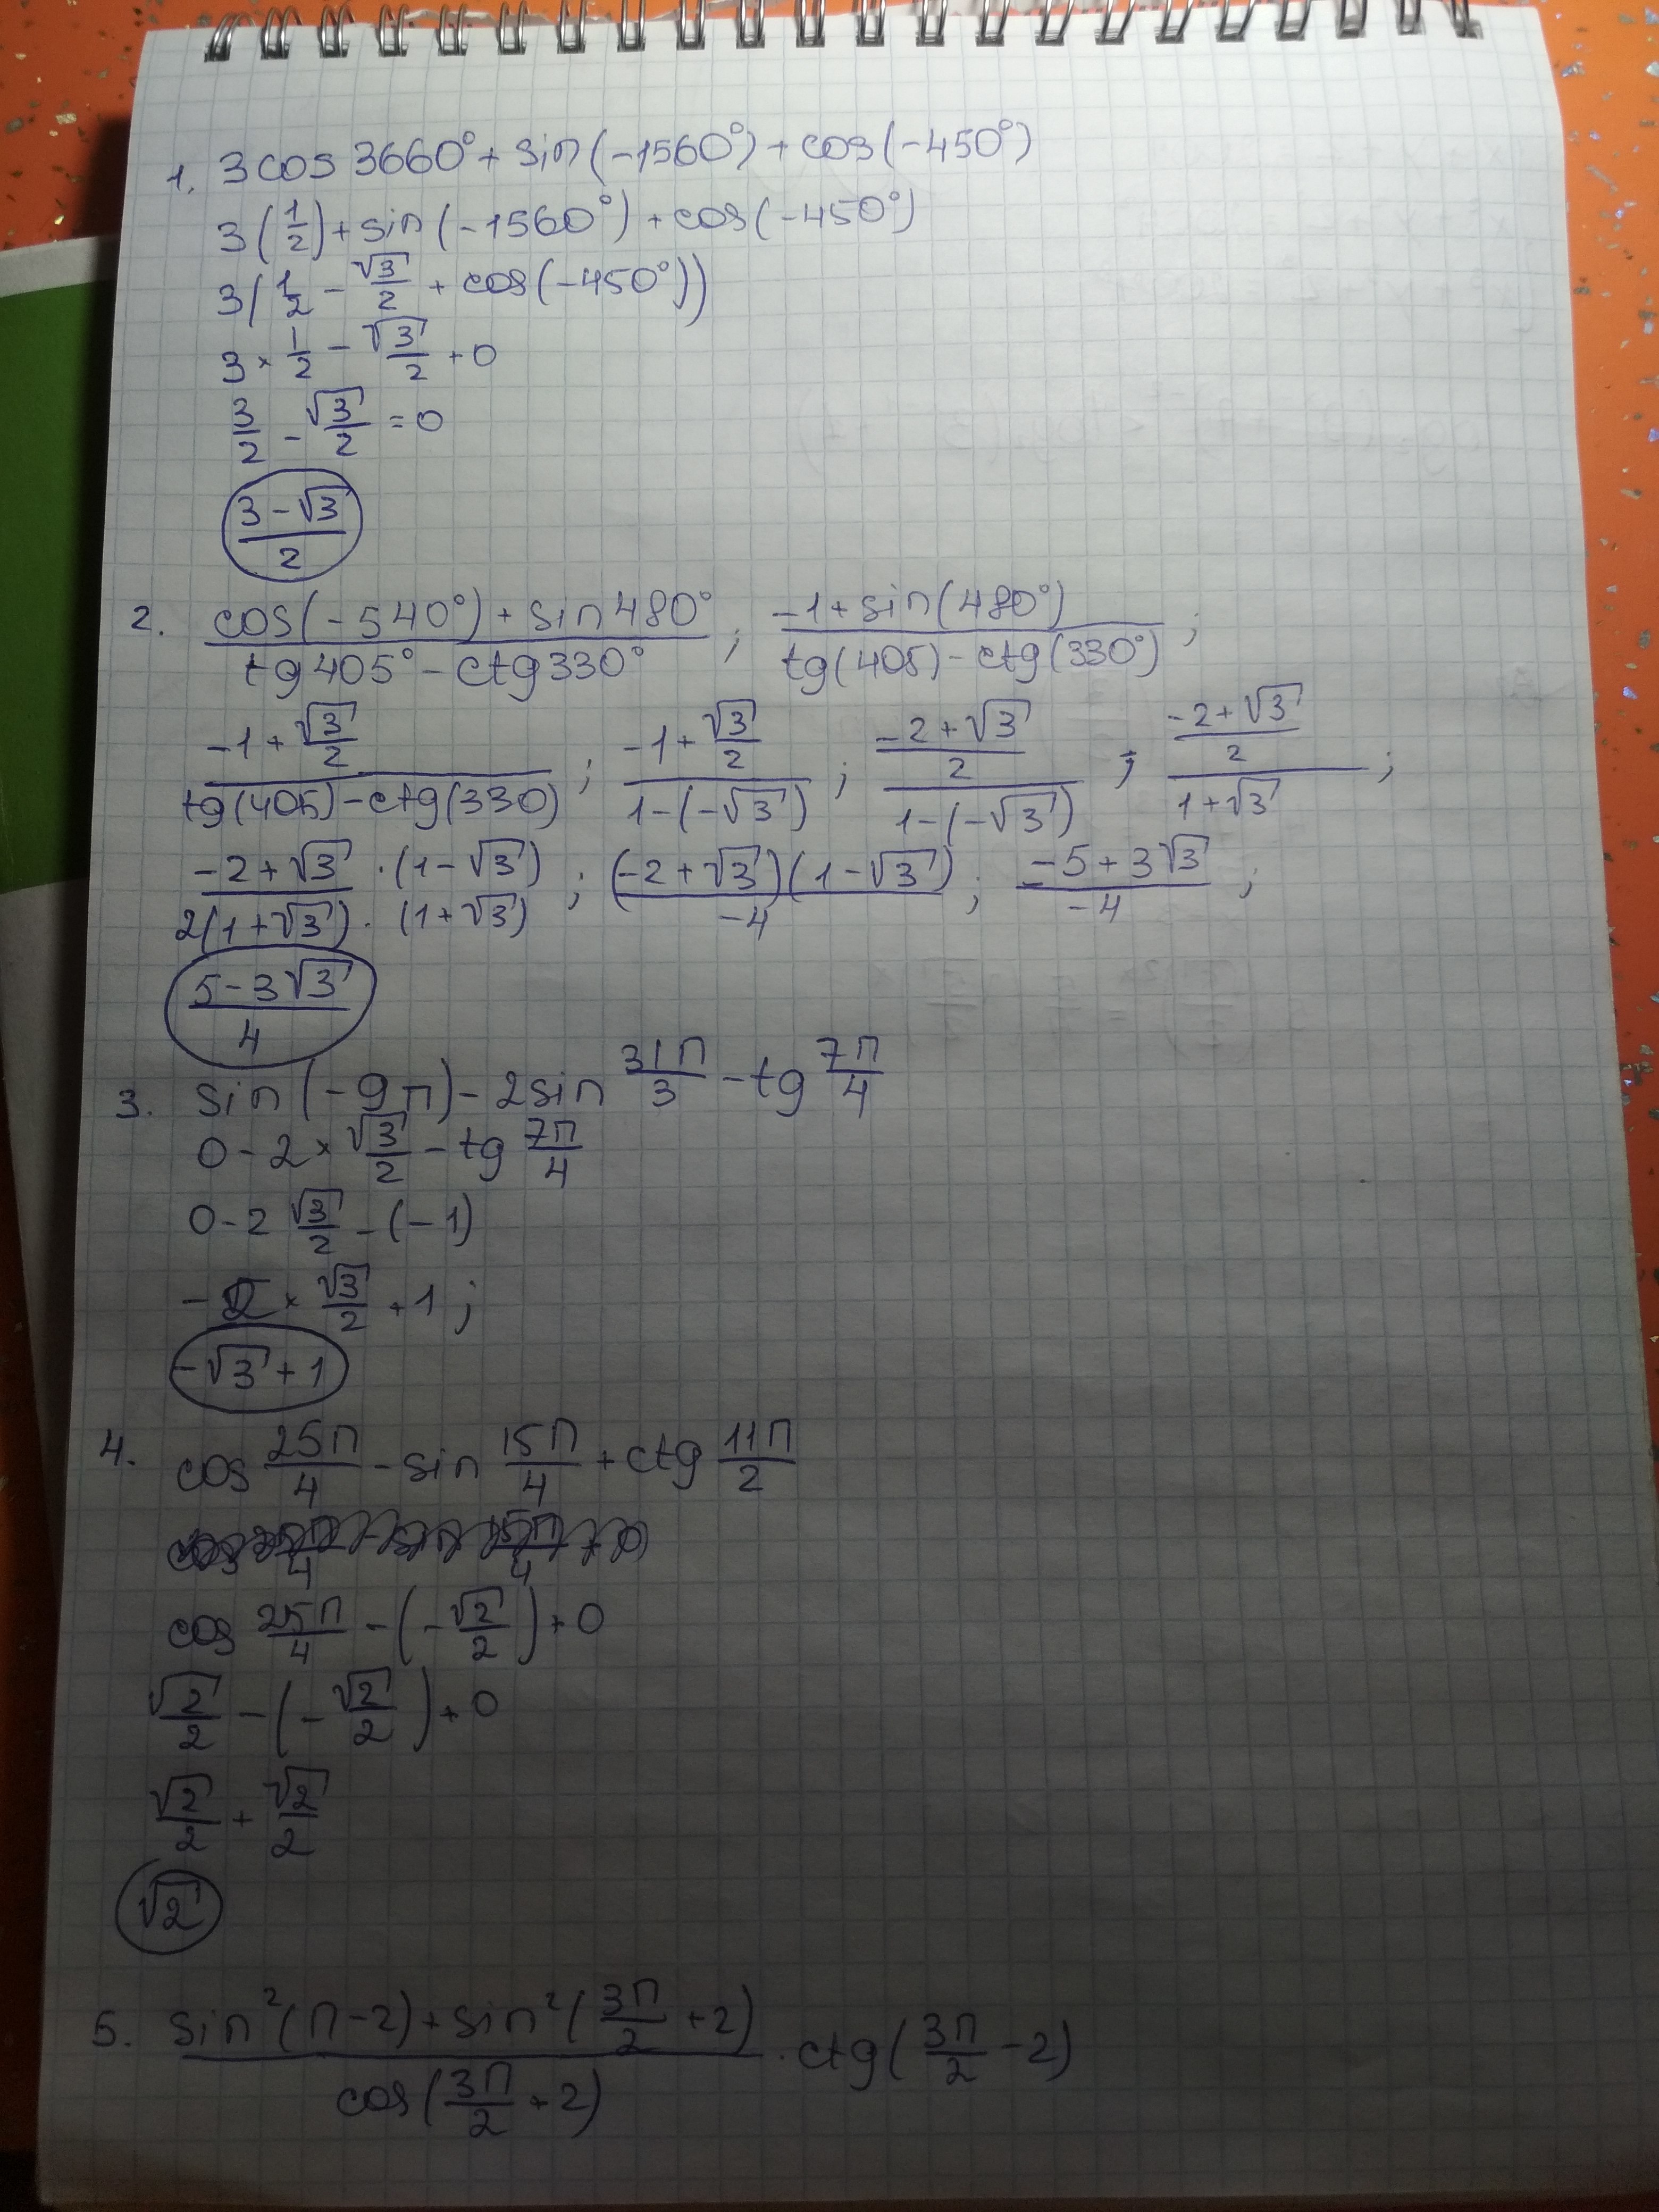 1. 3cos 3660° + sin(-1560°) + cos(-450°)
3(1/2) + sin(-1560°) + cos(-450°)
3(1/2 - √3/2 + cos(-450°))
3 × 1/2 - √3/2 + 0
3/2 - √3/2 = 0
(3-√3)/2
2. (cos(-540°) + sin480°)/(tg405° - ctg330°) ; (-1 + sin(480°))/(tg(405) - ctg(330°)) ;
(-1 + √3/2)/(tg(405) - ctg(330)) ; (-1 + √3/2)/(1-(-√3)) ; ((-2+√3)/2)/(1-(-√3)) ; ((-2+√3)/2)/(1+√3) ;
(-2+√3)·(1-√3)/(2(1+√3)·(1+√3)) ; (-2+√3)(1-√3)/-4 ; (-5+3√3)/-4 ;
(5-3√3)/4
3. sin(-9π) - 2sin 31π/3 - tg 7π/4
0 - 2 × √3/2 - tg 7π/4
0 - 2 √3/2 - (-1)
-2 × √3/2 + 1 ;
-√3 + 1
4. cos 25π/4 - sin 15π/4 + ctg 11π/2
cos 25π/4 - (-√2/2) + 0
√2/2 - (-√2/2) + 0
√2/2 + √2/2
√2
5. (sin²(π-2) + sin²(3π/2 + 2))/(cos(3π/2 + 2)) · ctg(3π/2 - 2)